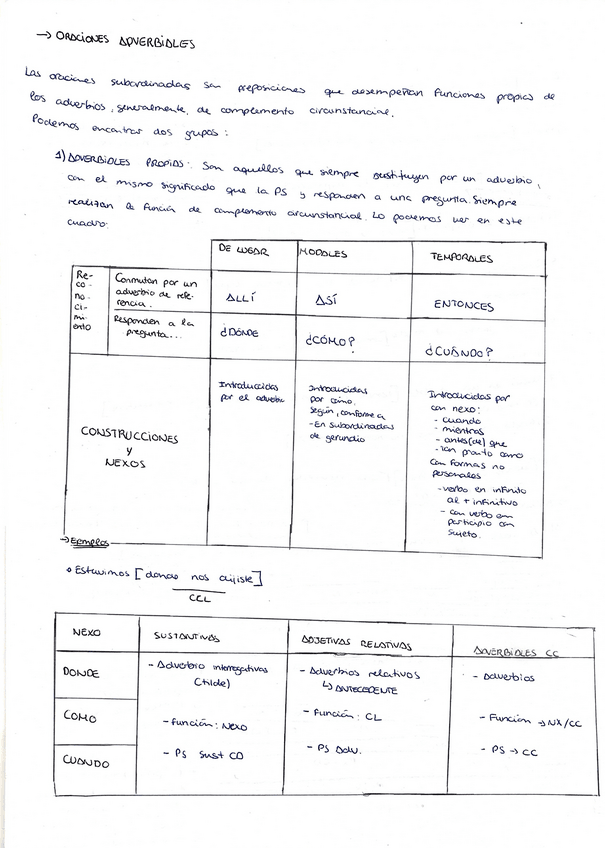 → ORACIONES ADVERBIALES
Las oraciones subordinadas son preposiciones que desempeñan funciones propias de
los adverbios, generalmente, de complemento circunstancial.
Podemos encontrar dos grupos:
1) ADVERBIALES PROPIAS: Son aquellos que siempre sustituyen por un adverbio,
con el mismo significado que la PS y responden a una pregunta. Siempre
realizan la función de complemento circunstancial. Lo podemos ver en este
cuadro:
DE LUGAR MODALES TEMPORALES
Re-
co-
no-
ci-
mi-
ento
Conmutan por un
adverbio de refe-
rencia.
ALLÍ ASÍ ENTONCES
Responden a la
pregunta...
¿DÓNDE ¿CÓMO? ¿CUÁNDO?
CONSTRUCCIONES
Y
NEXOS
Introducidas
por el adverbio
Introducidas
por cómo,
según, conforme a
- En subordinadas
de gerundio
Introducidas por
con nexo:
- cuando
- mientras
- antes(de) que
- Tan pronto como
Con formas no
personales
- verbo en infinito
al + infinitivo
- con verbo en
participio con
sujeto.
→ Ejemplos
• Estuvimos [donde nos dijiste]
CCL
NEXO SUSTANTIVAS ADJETIVAS RELATIVAS ADVERBIALES CC
DONDE
COMO
CUANDO
- Adverbio interrogativas
(tilde)
- función: Nexo
- PS Sust CD
- Adverbios relativos
↳ ANTECEDENTE
- Función: CL
- PS Adv.
- Adverbios
- Función → NX/CC
- PS → CC